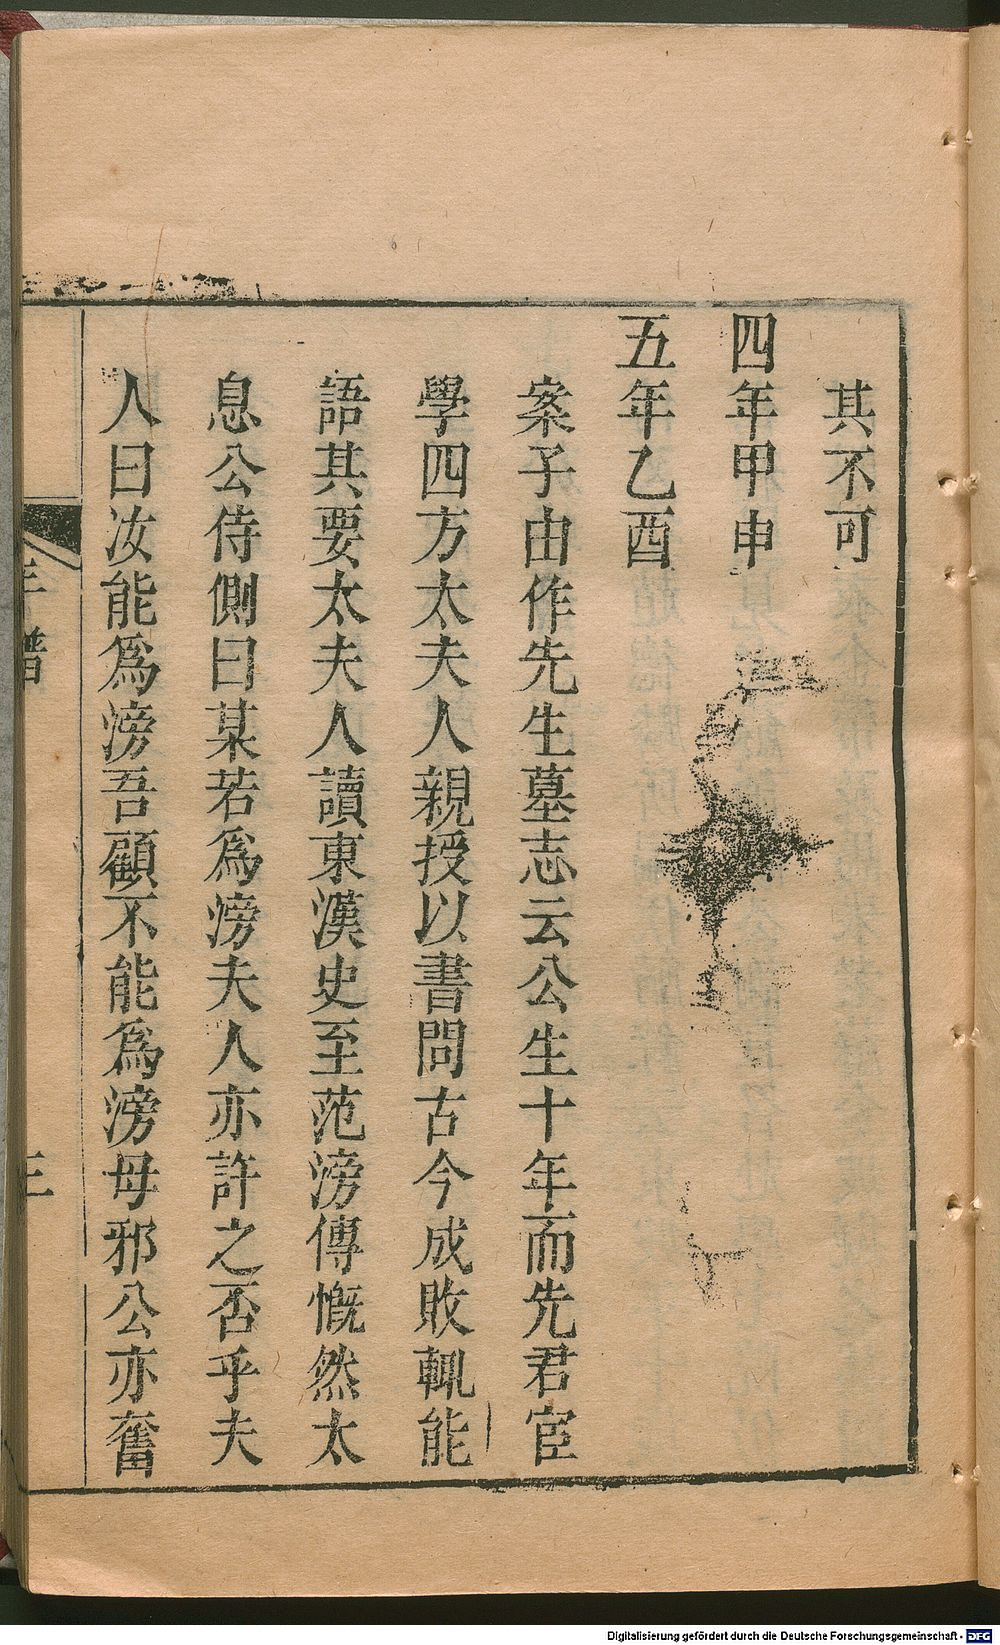 其不可
四年甲申
五年乙酉
案子由作先生墓志云公生十年而先君宦
學四方太夫人親授以書問古今成敗輒能
語其要太夫人讀東漢史至范滂傳慨然太
息公侍側曰某若爲滂夫人亦許之否乎夫
人曰汝能爲滂吾顧不能爲滂母邪公亦奮
年譜
三
Digitalisierung gefördert durch die Deutsche Forschungsgemeinschaft - DFG